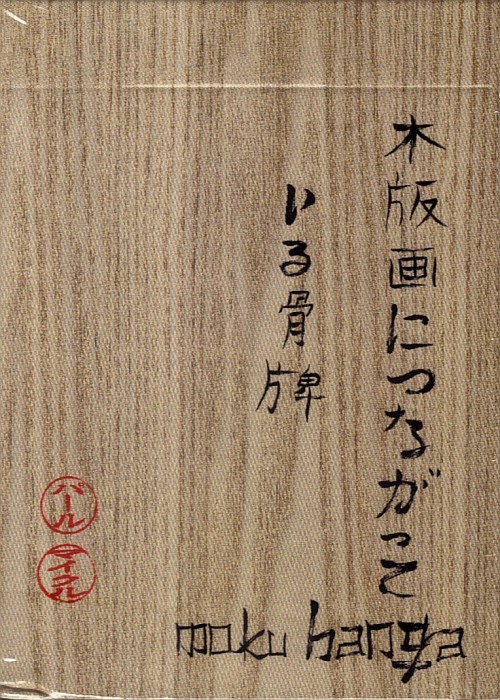 木版画につながって
いる骨牌
パール
マイクル
moku hanga